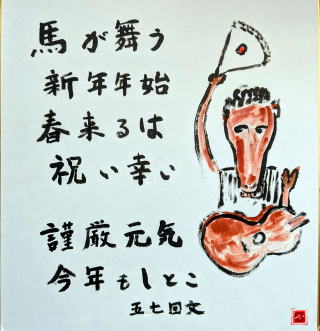 馬が舞う
新年年始
春来るは
祝い幸い
謹厳元気
今年もしとこ
五七回文
か